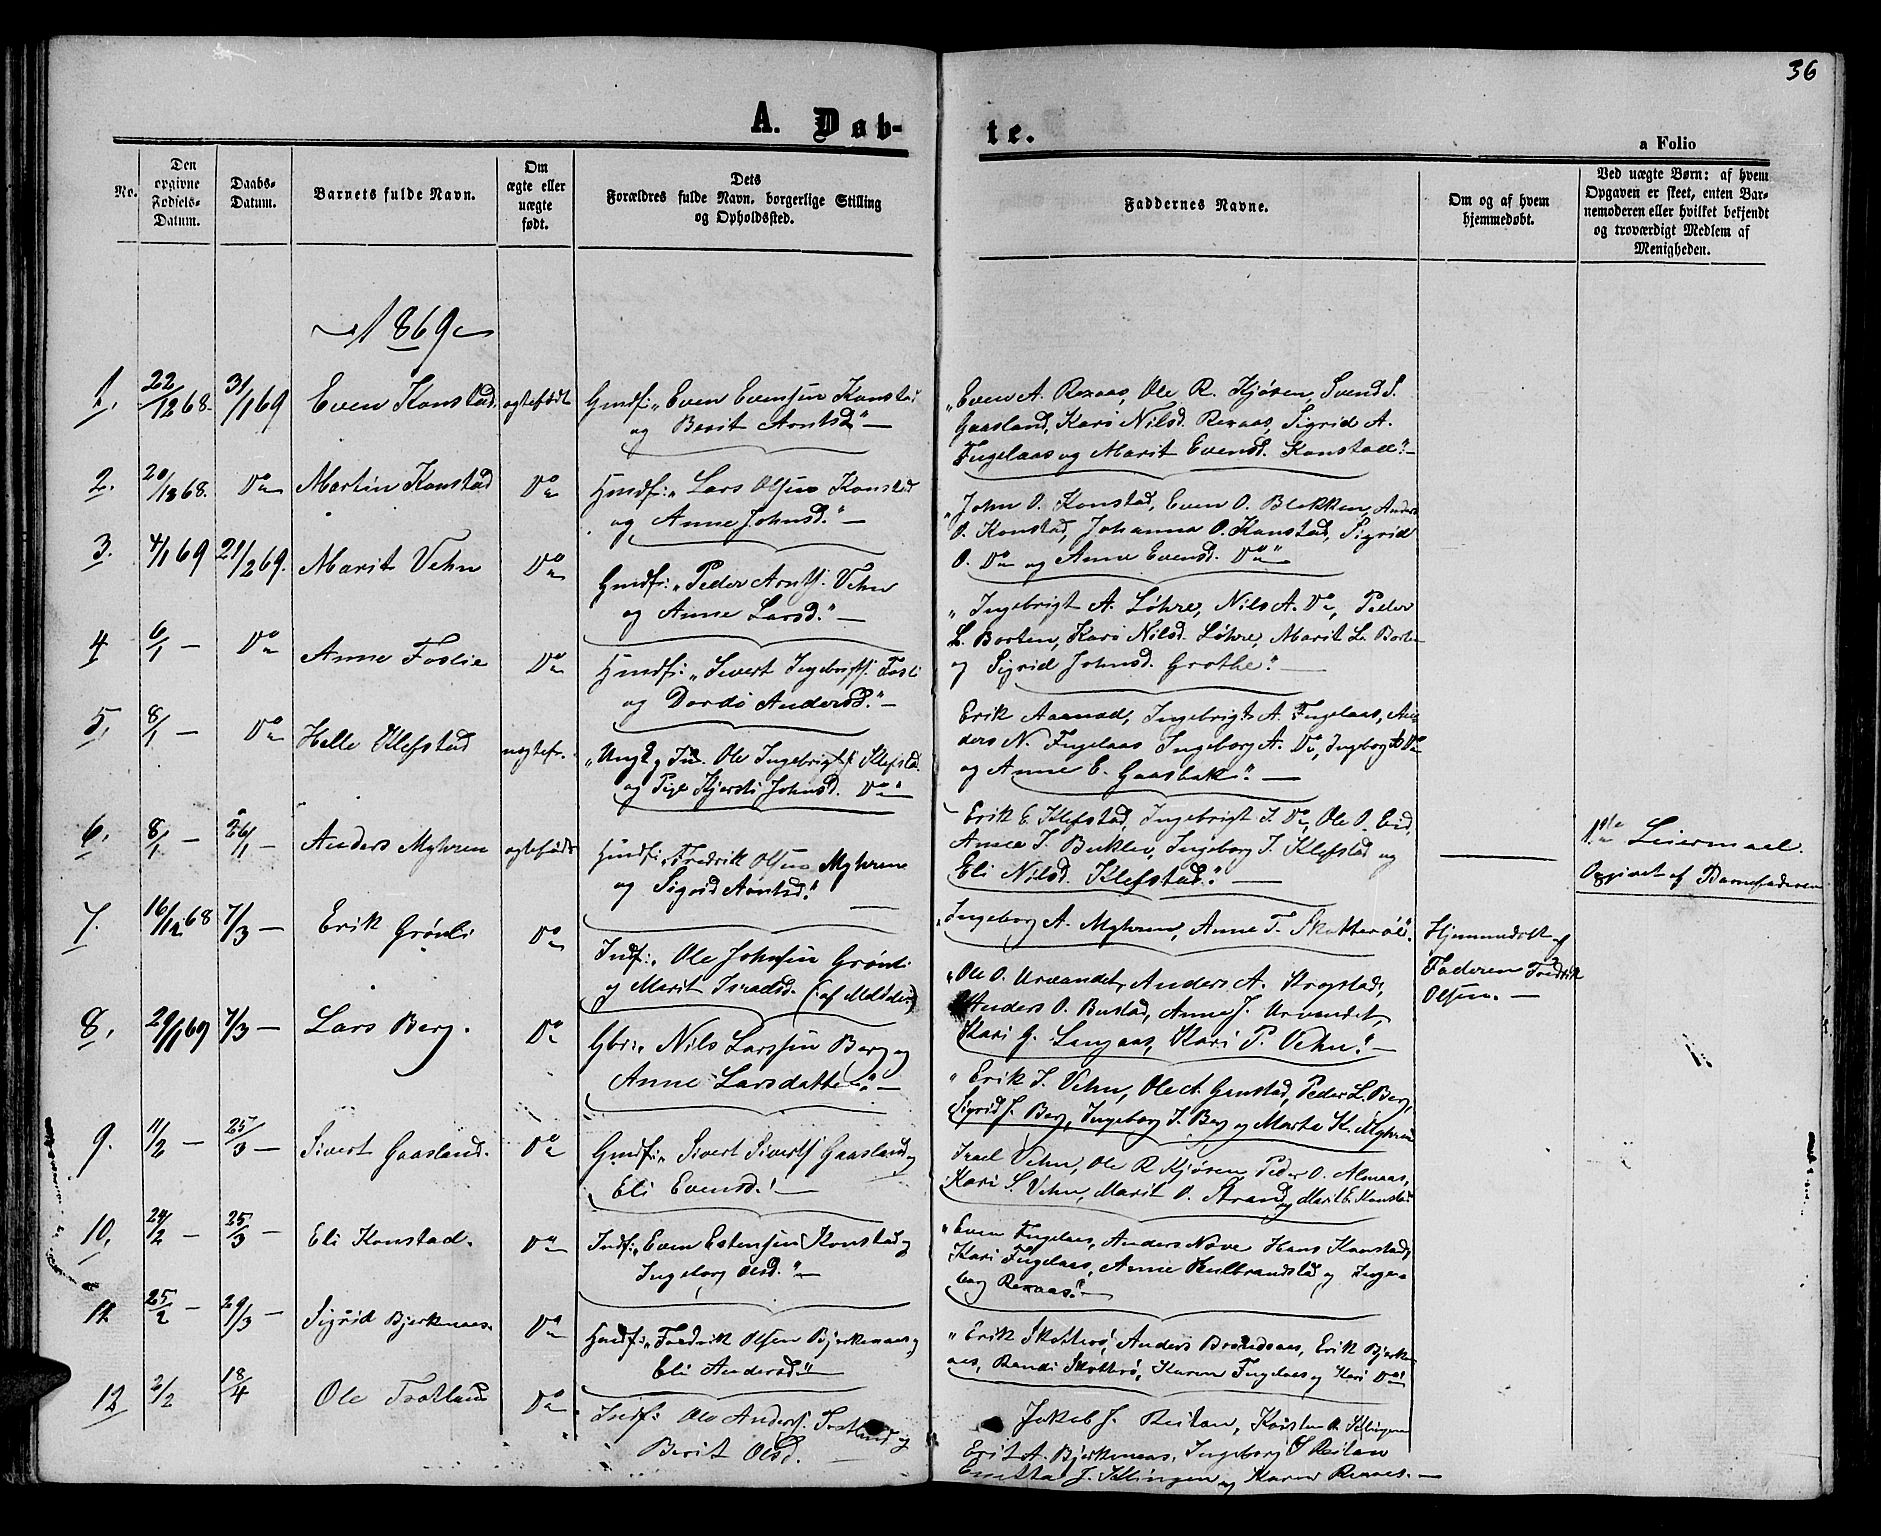 36
A. Døb-
te.
a Folio
No.
Den opgivne Fødsels-Datum.
Daabs-Datum.
Barnets fulde Navn.
Om ægte eller uægte født.
Dets Forældres fulde Navn, borgerlige Stilling og Opholdssted.
Faddernes Navne.
Om og af hvem hjemmedøbt.
Ved uægte Børn: af hvem Opgaven er skeet, enten Barnemoderen eller hvilket bekjendt og troværdigt Medlem af Menigheden.
1869
1. 22/12 68. 31/1 69 Even Konstad. ægtefødt Gmdf: "Even Evensen Konstad
og Berit Arntsd." —
"Even A. Rexaas, Ole R. Kjøren, Svend S.
Gaasland, Kari Nilsd. Rexaas, Sigrid A.
Fugelaas og Marit Evensd. Konstad." —
2. 20/12 68. Do Martin Konstad Do Hmdf: "Lars Olsen Konstad
og Anne Johnsd." —
"John O. Konstad, Even O. Blekken, Anders
O. Konstad, Johanna O. Konstad, Sigrid
O. Do og Anne Evensd. Do"
3. 4/1 69 21/2 69. Marit Vehn Do Gmdf: "Peder Arntsf. Vehn
og Anne Larsd." —
"Ingebrigt A. Løhre, Nils A. Do, Peder
L. Borten, Kari Nilsd. Løhre, Marit L. Borten
og Sigrid Johnsd. Grothe." —
4 6/1 — Do Anne Foslie Do Hmdf: "Sivert Ingebrigtsf. Fosli
og Dordi Andersd." —
Erik Aamod, Ingebrigt A. Fugelaas, An-
ders N. Fugelaas Ingeborg A. Do, Ingeborg Do
og Anne E. Gaasbak." —
5. 8/1 — Do Helle Klefstad uægtef. "Ungk. Ole Ingebrigtsf. Klefstad
og Pige Kjersti Johnsd. Do"
Erik E. Klefstad, Ingebrigt I. Do, Ole O. Eid,
Anne I. Buklev, Ingeborg I. Klefstad og
Eli Nilsd. Klefstad." —
1ste Leiermaal.
Opgivet af Barnefaderen
6. 8/1 — 26/1 — Anders Myhren ægtefødt Hmdf: "Fredrik Olsen Myhren
og Sigrid Arntsd." —
"Ingeborg A. Myhren, Anne F. Skotterøl."
Hjemmedøbt af
Faderen Fredrik
Olsen. —
7. 16/12 68 7/3 — Erik Grønli Do Indf: "Ole Johnsen Grønli
og Marit Israelsd. (af Meldal)
"Ole O. Urvandet, Anders A. Krogstad,
Anders O. Bustad, Anne J. Urvandet,
Kari G. Langaas, Kari P. Vehn." —
8. 29/1 69 7/3 — Lars Berg. Do Gbr: "Nils Larssen Berg og
Anne Larsdatter." —
"Erik I. Vehn, Ole A. Grinstad, Peder L. Berg,
Sigrid J. Berg, Ingeborg J. Berg og Marta K. Myhren
9. 11/2 — 25/3 — Sivert Gaasland. Do Gmdf: "Sivert Sivertsf. Gaasland og
Eli Evensd." —
Israel Vehn, Ole R Kjøren Peder O. Almaas,
Kari S. Vehn, Marit O. Strand og Marit E. Konstad
10. 24/2 — 25/3 — Eli Konstad. Do Indf: "Even Estensen Konstad og
Ingeborg Olsd." —
"Even Fugelaas, Anders Nove Hans Konstad,
Kari Fugelaas, Anne Hulbrandstad og Inge-
borg Rexaas." —
11. 25/2 — 29/3 — Sigrid Bjerkenaas. Do Hmdf: "Fredrik Olsen Bjerkenaas og
Eli Andersd." —
"Erik Skotterø, Anders Brandsaas, Erik Bjerke-
aas, Randi Skotterø, Karen Fugelaas og Kari Do"
12 2/2 18/4 Ole Trotland Do Indf: Ole Andersf. Trotland og
Berit Olsd. —
Jakob J. Reitan, Karsten O. Kllingen
Erik A. Bjerkenaas, Ingeborg S Reitan
J. Kllingen og Karen Rexaas. —